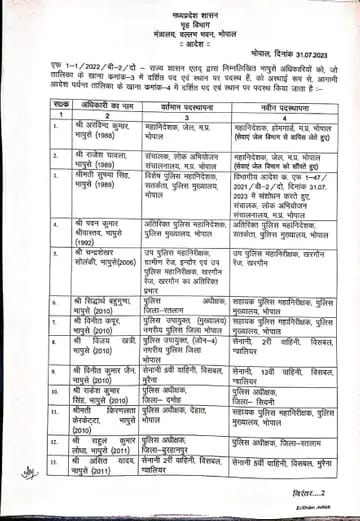 मध्यप्रदेश शासन
गृह विभाग
मंत्रालय, वल्लभ भवन, भोपाल
:: आदेश ::
भोपाल, दिनांक 31.07.2023
एफ 1-1/2022/बी-2/दो - राज्य शासन एतद् द्वारा निम्नलिखित भापुसे अधिकारियों को, जो
तालिका के खाना क्रमांक-3 में दर्शित पद एवं स्थान पर पदस्थ हैं, को अस्थाई रूप से, आगामी
आदेश पर्यन्त तालिका के खाना क्रमांक-4 में दर्शित पद एवं स्थान पर पदस्थ किया जाता है :-
स0क्र अधिकारी का नाम वर्तमान पदस्थापना नवीन पदस्थापना
1 2 3 4
1. श्री अरविन्द कुमार, महानिदेशक, जेल, म.प्र. महानिदेशक, होमगार्ड, म.प्र. भोपाल
भापुसे (1988) भोपाल (सेवाएं जेल विभाग से वापिस लेते हुए)
2. श्री राजेश चावला, संचालक, लोक अभियोजन महानिदेशक, जेल, म.प्र. भोपाल
भापुसे (1989) संचालनालय, म.प्र. भोपाल (सेवाएं जेल विभाग को सौंपते हुए)
3. श्रीमती सुषमा सिंह, विशेष पुलिस महानिदेशक, विभागीय आदेश क. एफ 1-47
भापुसे (1989) सतर्कता, पुलिस मुख्यालय, /2021/बी-2/दो, दिनांक 31.07.
भोपाल 2023 में संशोधन करते हुए,
संचालक, लोक अभियोजन
संचालनालय, म.प्र. भोपाल
4. श्री पवन कुमार अतिरिक्त पुलिस महानिदेशक, अतिरिक्त पुलिस महानिदेशक,
श्रीवास्तव, भापुसे पुलिस मुख्यालय, भोपाल सतर्कता, पुलिस मुख्यालय, भोपाल
(1992)
5. श्री चन्द्रशेखर उप पुलिस महानिरीक्षक, उप पुलिस महानिरीक्षक, खरगौन
सोलंकी, भापुसे(2006) ग्रामीण रेंज, इन्दौर एवं उप रेंज, खरगौन
पुलिस महानिरीक्षक, खरगौन
रेंज, खरगौन का अतिरिक्त
प्रभार
6. श्री सिद्धार्थ बहुगुणा, पुलिस अधीक्षक, सहायक पुलिस महानिरीक्षक, पुलिस
भापुसे (2010) जिला-रतलाम मुख्यालय, भोपाल
7. श्री विनीत कपूर, पुलिस उपायुक्त, (मुख्यालय) सहायक पुलिस महानिरीक्षक, पुलिस
भापुसे (2010) नगरीय पुलिस जिला भोपाल मुख्यालय, भोपाल
8. श्री विजय खत्री, पुलिस उपायुक्त, (जोन-4) सेनानी, 2री वाहिनी, विसबल,
भापुसे (2010) नगरीय पुलिस जिला ग्वालियर
भोपाल
9. श्री विनीत कुमार जैन, सेनानी 5वीं वाहिनी, विसबल, सेनानी, 13वीं वाहिनी, विसबल,
भापुसे (2010) मुरैना ग्वालियर
10. श्री राकेश कुमार पुलिस अधीक्षक, पुलिस अधीक्षक,
सिंह, भापुसे (2010) जिला- दमोह जिला- सिवनी
11. श्रीमती किरणलता पुलिस अधीक्षक, देहात, सहायक पुलिस महानिरीक्षक, पुलिस
केरकेट्टा, भापुसे भोपाल मुख्यालय, भोपाल
(2010)
12. श्री राहुल कुमार पुलिस अधीक्षक, पुलिस अधीक्षक, जिला-रतलाम
लोढा, भापुसे (2011) जिला-बुरहानपुर
13. श्री असित यादव, सेनानी 2री वाहिनी, विसबल, सेनानी 5वीं वाहिनी, विसबल, मुरैना
भापुसे (2011) ग्वालियर
निरंतर....2